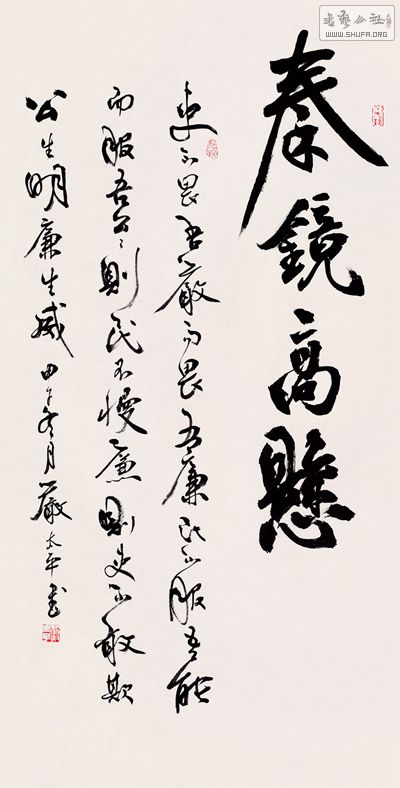 書藝公社
WWW.SHUFA.ORG
秦鏡高懸
吏不畏吾嚴而畏吾廉民不服吾能
而服吾公々則民不慢廉則吏不敢欺
公生明廉生威 甲午冬月嚴太平書